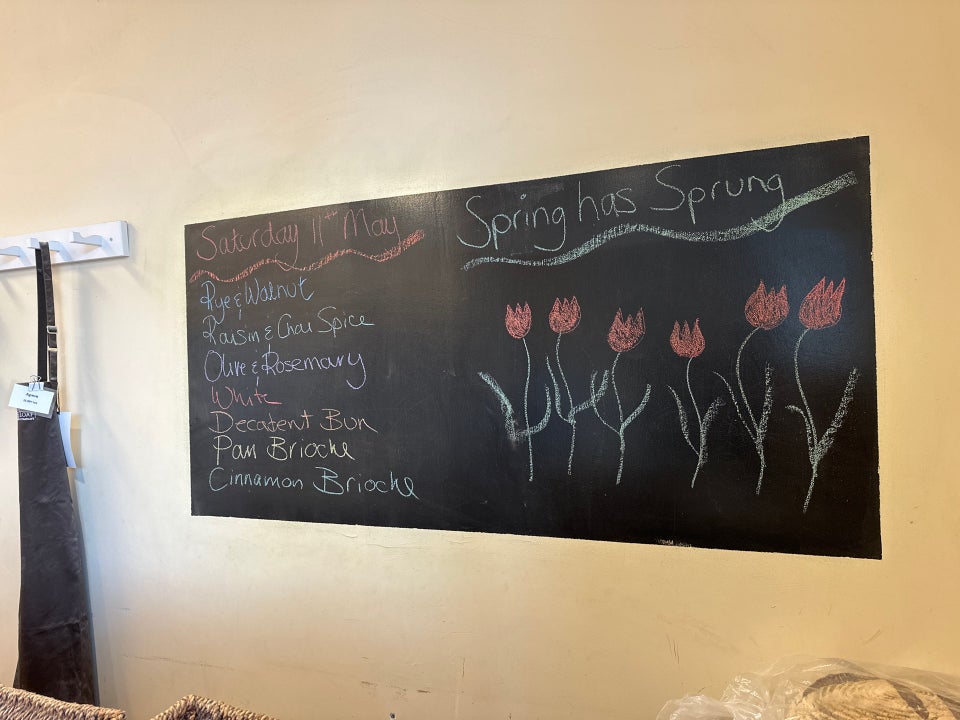 Saturday 11th May
Rye & Walnut
Raisin & Chai Spice
Olive & Rosemary
White
Decatent Bun
Pan Brioche
Cinnamon Brioche
Spring has Sprung
Apron